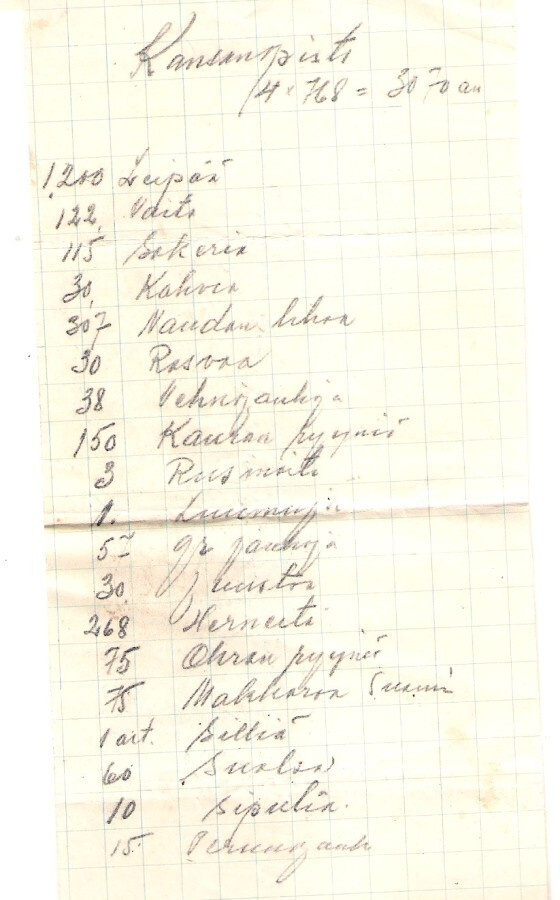 Kansanopisto
4 × 768 = 3070 an
1,200 Leipää
122, Voita
115 Sokeria
30, Kahvia
307 Naudan lihaa
30 Rasvaa
38 Vehnäjauhoja
150 Kauran ryyniä
3 Rusinoita
1. Luumuja
5 gr jauhoja
30 Juustoa
268 Herneitä
75 Ohran ryyniä
75 Makkaraa
1 ast. Silliä
60 Suolaa
10 Sipulia.
15 Perunajauh